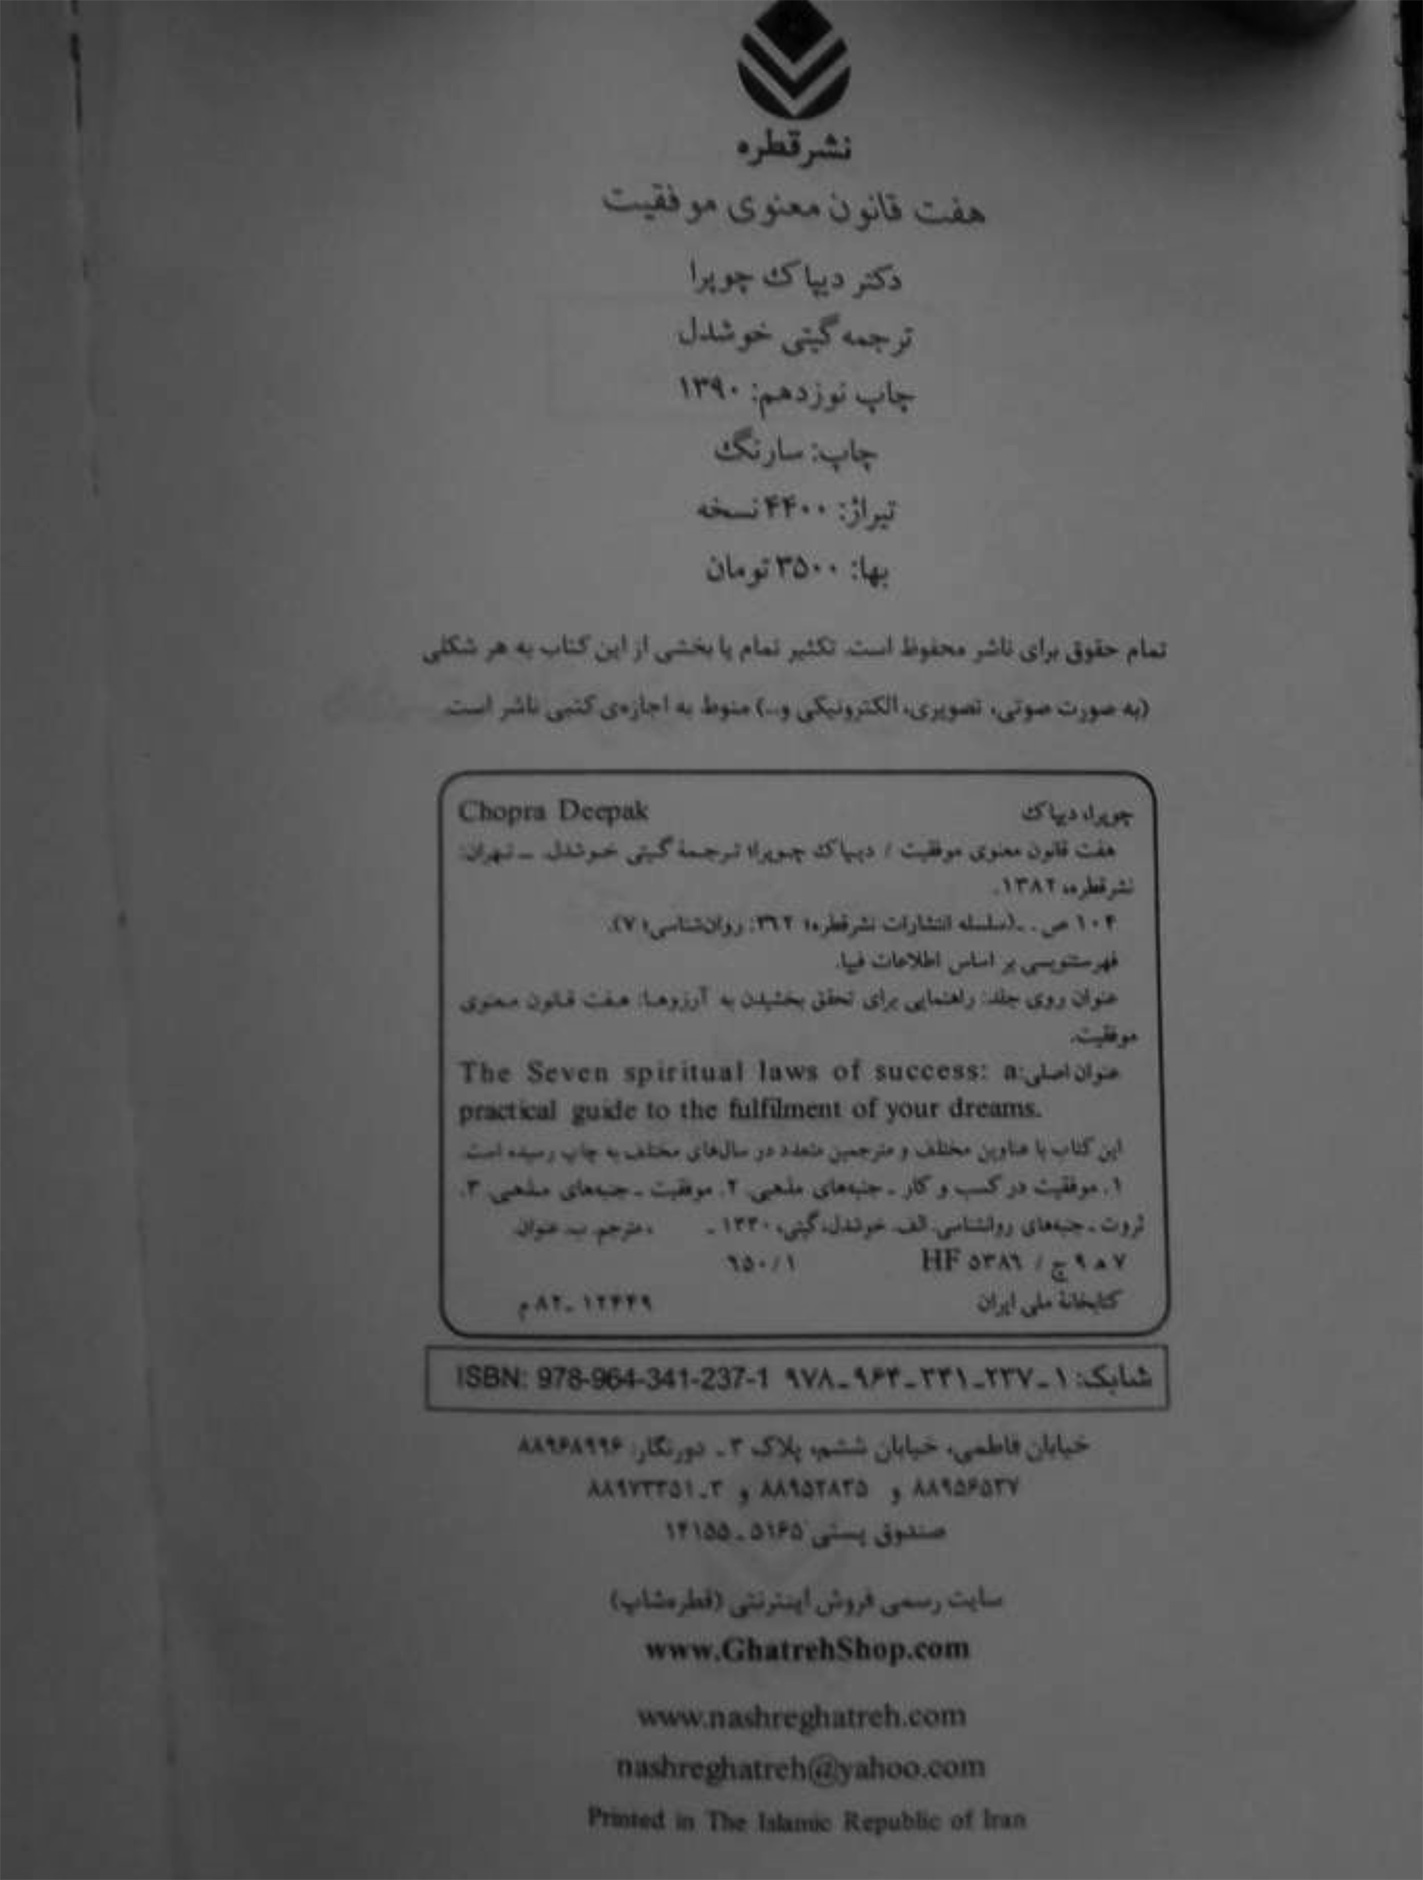 نشر قطره
هفت قانون معنوی موفقیت
دکتر دیپاک چوپرا
ترجمه گیتی خوشدل
چاپ نوزدهم: ۱۳۹۰
چاپ: سارنگ
تیراژ: ۴۴۰۰ نسخه
بها: ۳۵۰۰ تومان
تمام حقوق برای ناشر محفوظ است. تکثیر تمام یا بخشی از این کتاب به هر شکلی
(به صورت صوتی، تصویری، الکترونیکی و...) منوط به اجازه‌ی کتبی ناشر است.
چوپرا، دیپاک Chopra Deepak
هفت قانون معنوی موفقیت / دیپاک چوپرا؛ ترجمهٔ گیتی خوشدل. ــ تهران:
نشر قطره، ۱۳۸۲.
۱۰۴ ص. ــ (سلسله انتشارات نشر قطره؛ ۳۶۲: روان‌شناسی؛ ۷).
فهرستنویسی بر اساس اطلاعات فیپا.
عنوان روی جلد: راهنمایی برای تحقق بخشیدن به آرزوها: هفت قانون معنوی
موفقیت.
عنوان اصلی: The Seven spiritual laws of success: a
practical guide to the fulfilment of your dreams.
این کتاب با عناوین مختلف و مترجمین متعدد در سال‌های مختلف به چاپ رسیده است.
۱. موفقیت در کسب و کار ـ جنبه‌های مذهبی. ۲. موفقیت ـ جنبه‌های مذهبی. ۳.
ثروت ـ جنبه‌های روانشناسی. الف. خوشدل، گیتی، ۱۳۳۰ ـ ، مترجم. ب. عنوان.
۷ ه ۹ چ / HF ۵۳۸۶ ۶۵۰/۱
کتابخانهٔ ملی ایران ۱۲۴۴۹ ـ ۸۲ م
شابک: ۱ـ۲۳۷ـ۳۴۱ـ۹۶۴ـ۹۷۸ ISBN: 978-964-341-237-1
خیابان فاطمی، خیابان ششم، پلاک ۳ ـ دورنگار: ۸۸۹۶۸۹۹۶
۸۸۹۵۶۵۳۷ و ۸۸۹۵۲۸۳۵ و ۳ـ۸۸۹۷۳۳۵۱
صندوق پستی ۵۱۶۵ ـ ۱۴۱۵۵
سایت رسمی فروش اینترنتی (قطره‌شاپ)
www.GhatrehShop.com
www.nashreghatreh.com
nashreghatreh@yahoo.com
Printed in The Islamic Republic of Iran